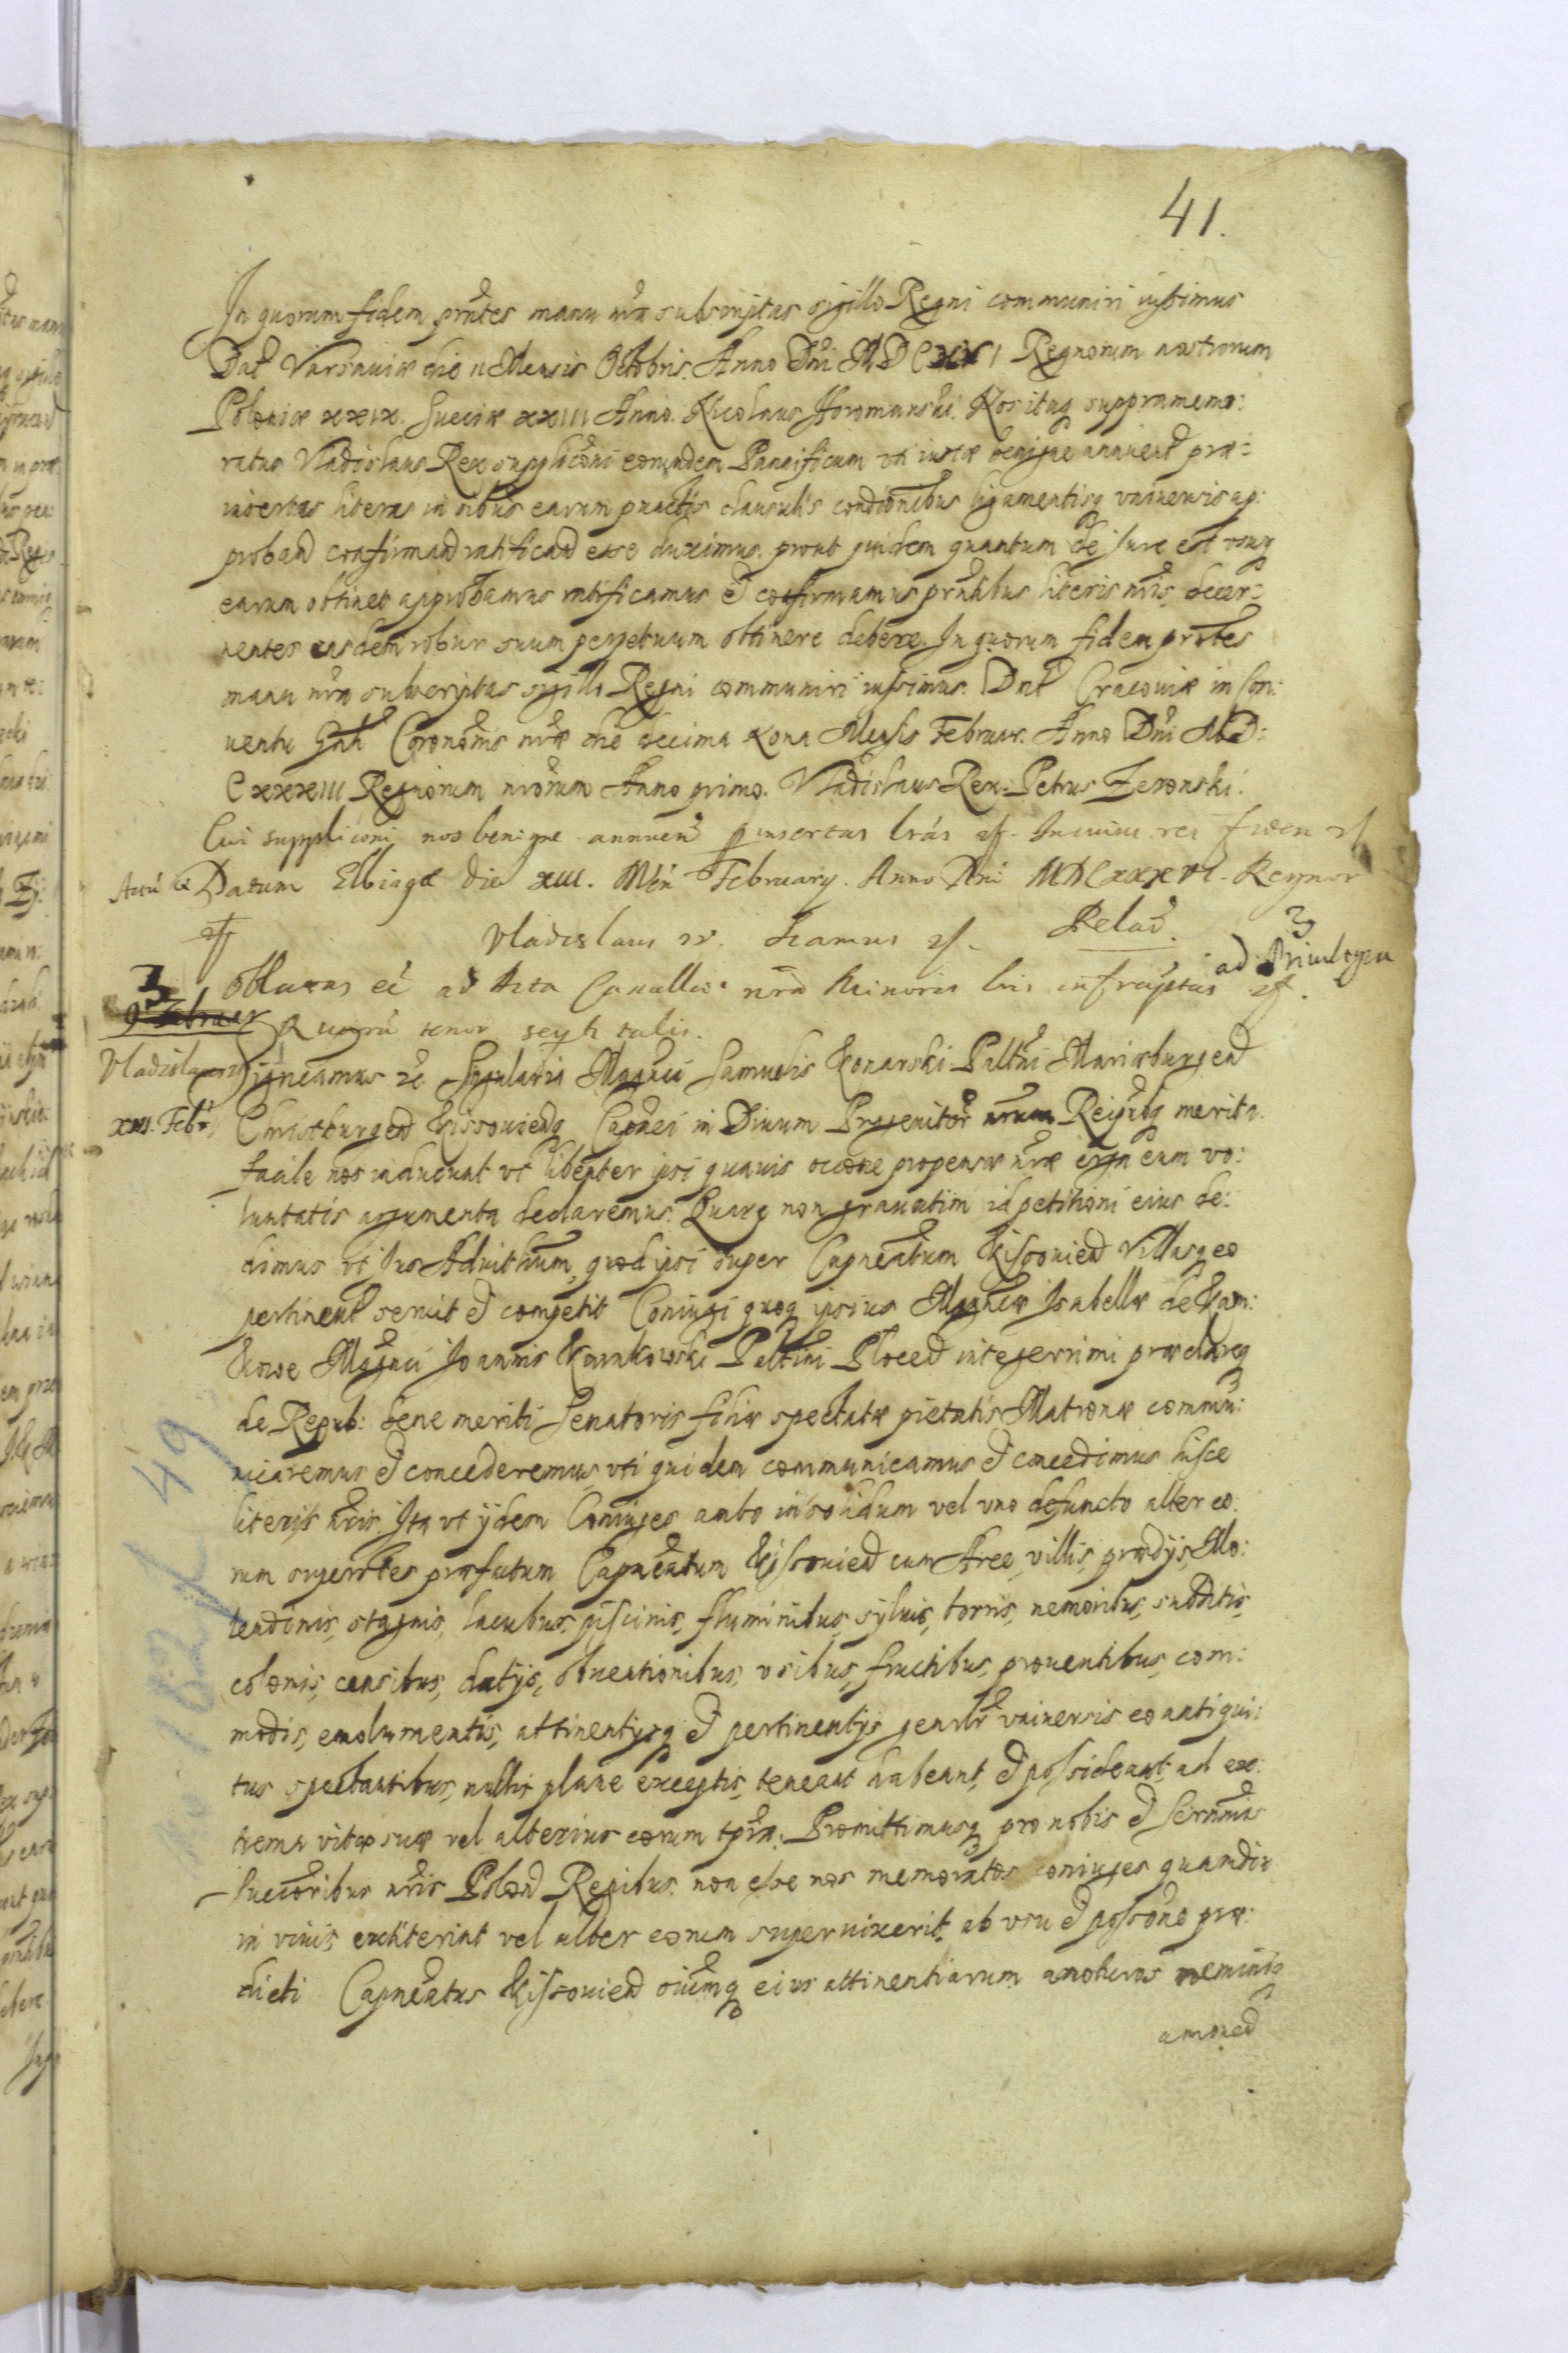 41.
In quorum fidem prñtes manu nrã subscriptas sigillo Regni communiri iussimus
Dat Varsauiæ die 11 Mensis Octobris. Anno Dñi MDCXVI Regnorum nostrorum
Poloniæ xxix. Sueciæ xxiii Anno. Nicolaus Noromanski. Nos itaq supramemo:
ratus Vladislaus Rex supplicõni eorundem Pannificum uti iustæ benigne annuend præ:
insertas literas in oibus earum punctis clausulis condõnibus ligamentisq vniuersis ap:
proband confirmand ratificand esse duximus. prout quidem quantum de Jure est vsusq
earum obtinet approbamus ratificamus et confirmamus prñtibus literis nris, decer:
nentes easdem robur suum perpetuum obtinere debere. In quorum fidem prñtes
manu nrã subscriptas sigillo Regni communiri iussimus. Dat Cracouiæ in Con:
uentu Gñli Coronõnis nræ die decima Nona Mensis Februar. Anno Dñi M.D:
CXXXIII Regnorum nrõrum Anno primo. Vladislaus Rex. Petrus Zeronski.
Cui suppliconi nos benigne annuend p insertas lrãs etc. In cuius rei fidem etc
Actũ
Datum Elbingæ die XIII. Mẽn February. Anno Dni MDCXXXVI. Regnor
etc Vladislaus R. Relaõ.
3
Oblatus ad Acta Cancellar nrã Minoris lris infrascriptus ad Priuilegia etc.
3
9 Februar
Quarũ tenor seqtr talis.
Vladislaus
Significamus etc Singularia Magnci Samuelis Konarski Paltini Mariæburgen
XIII. Feb.
Christburgen Kissouienq Capnei in Diuum Progenitor nrum Reipubq merita
facile nos inducunt vt libenter ipsi quauis occone propensæ nræ erga eum vo:
luntatis argumenta declaremus. Quare non grauatim id petitioni eius de:
dimus vt Jus Aduitium, quod ipsi super Capneatum Kissouien Villasq eo
pertinent seruit et competit Coniugi quoq ipsius Magncæ Isabellæ de Karn:
kowo Magnci Joannis Karnkowski Paltini Plocen integerrimi præclareq
de Repub: bene meriti Senatoris filiæ spectatæ pietatis Matronæ commu:
nicaremus et concederemus, vti quidem communicamus et concedimus hisce
literis nris. Ita vt ijdem Coniuges ambo insolidum vel vno defuncto alter eo:
rum superstes præfatum Capneatum Kissouien cum Arce, villis, prædijs, Mo:
lendinis, stagnis, lacubus, piscinis, fluminibus, syluis, borris, nemoribus, subditis,
colonis, censibus, datijs, obuentionibus, vsibus, fructibus, prouentibus, com:
modis, emolumentis, attinentijsq et pertinentijs genrlr vniuersis eo antiqui:
tus spectantibus, nullis plane exceptis, teneant habeant, et possideant, ad ex:
trema vitæ suæ vel alterius eorum tpra. Promittimusq pro nobis et Serñmis
Succoribus nris Polon Regibus. non esse nos memoratos coniuges quamdiu
in viuis extiterint vel alter eorum superuixerit, ab vsu et possõne præ:
dicti Capneatus Kissouien oiumq eius attinentiarum amoturos neminiq
amouen
49
182